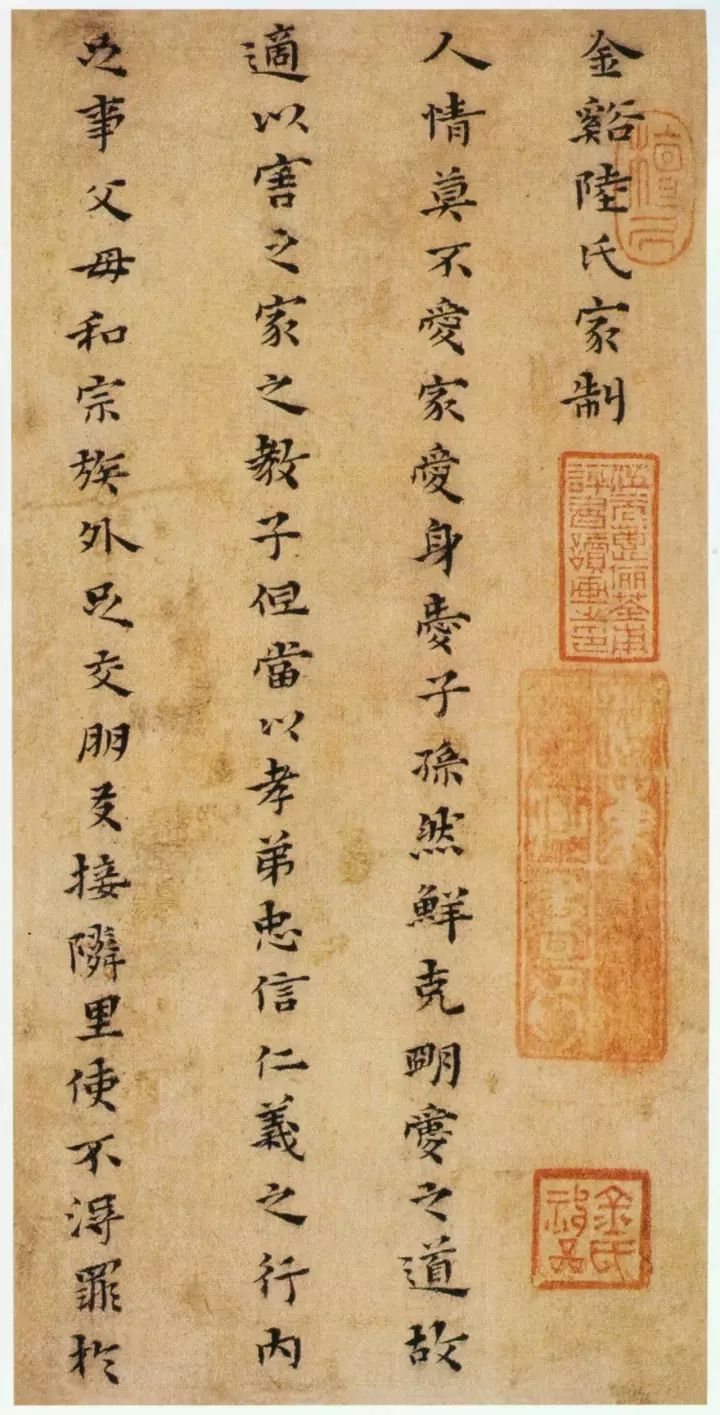 金谿陸氏家制
人情莫不愛家愛身愛子孫然鮮克明愛之道故
適以害之家之教子但當以孝弟忠信仁義之行内
足事父母和宗族外足交朋友接隣里使不得罪於
金氏